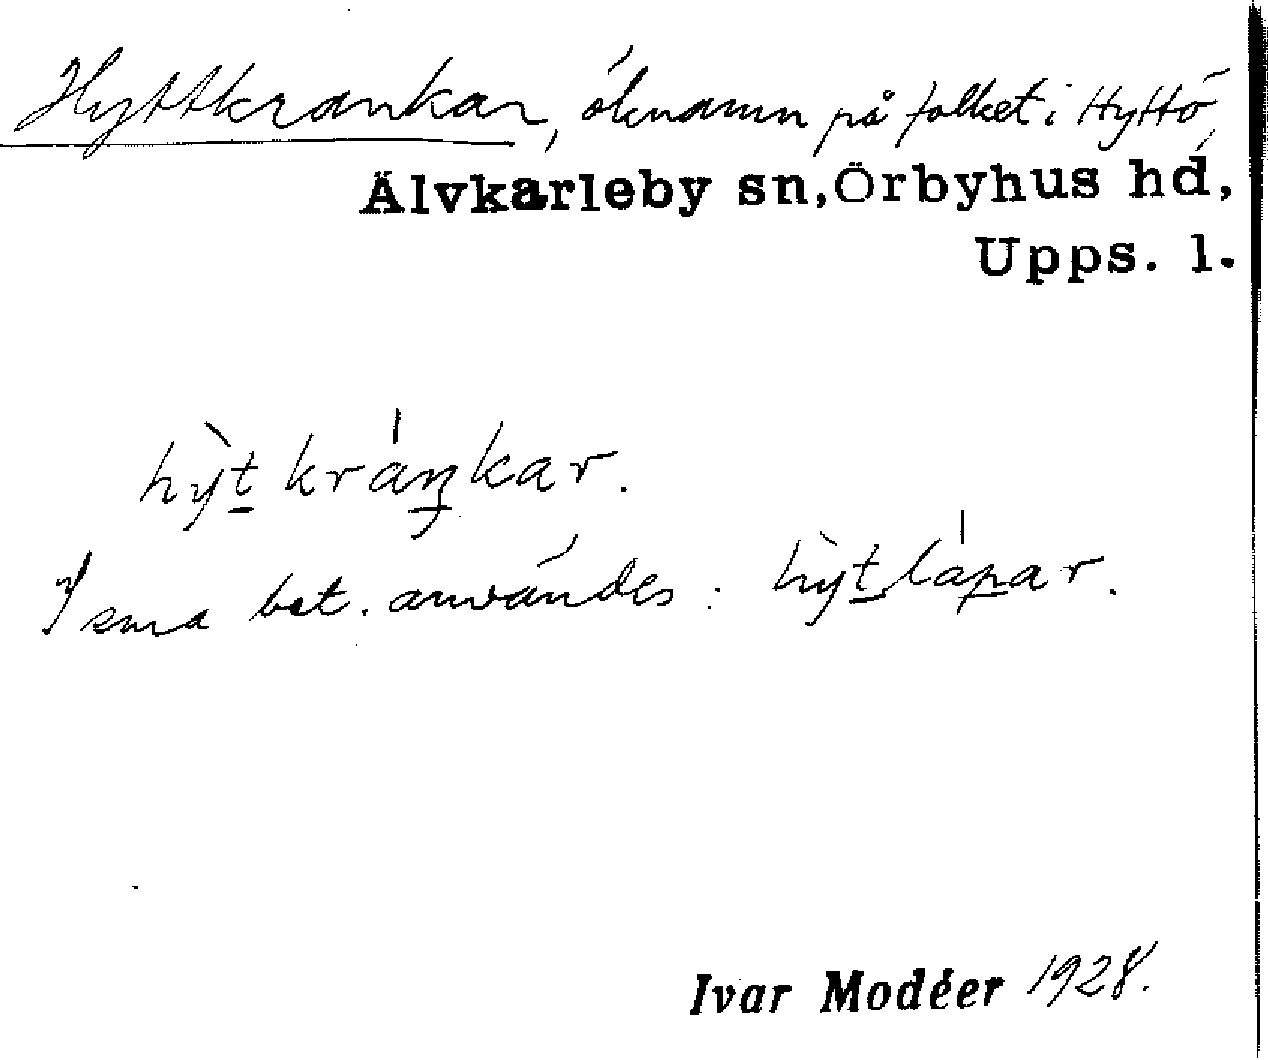 Hyttkrankar, öknamn på folket i Hyttö,
Älvkarleby sn, Örbyhus hd,
Upps. l.
hỳt kráŋkar.
I sma bet. användes: hỳtlápar.
Ivar Modéer 1928.